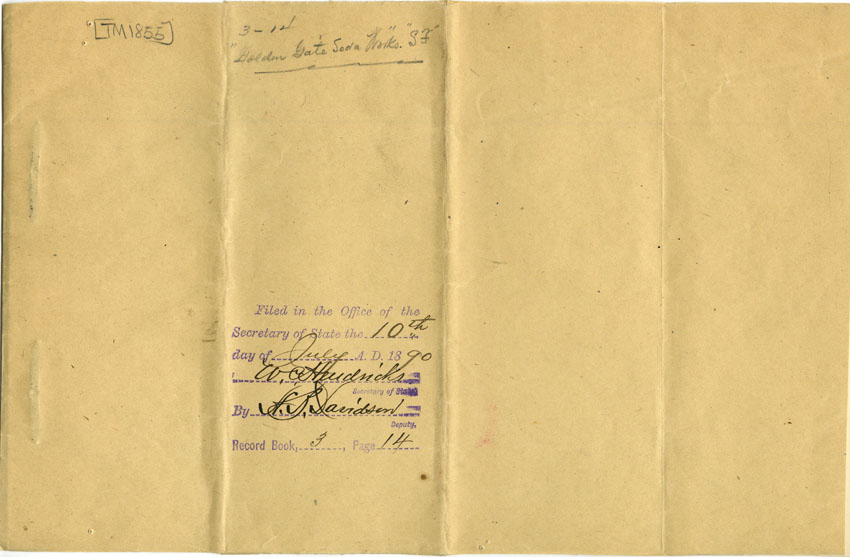 [TM1855]
3-14
"Golden Gate Soda Works." "SF"
Filed in the Office of the
Secretary of State the 10th
day of July A. D. 1890
W. C. Hendricks
Secretary of State
By Davidson
Deputy.
Record Book, 3, Page 14